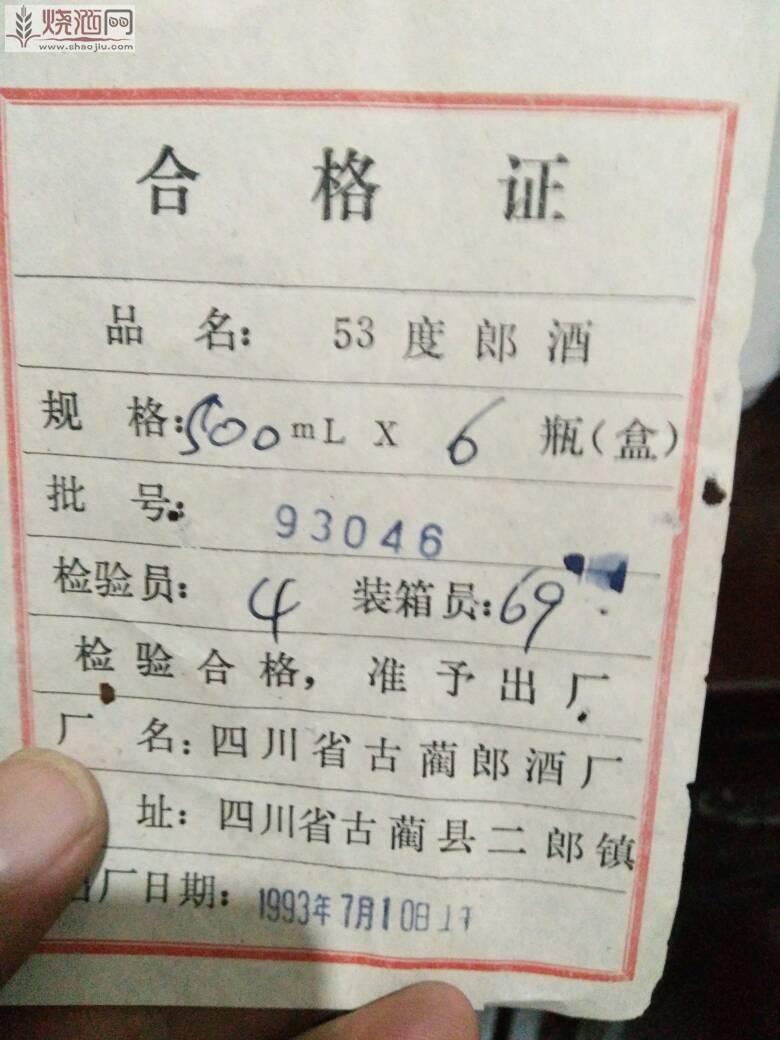 烧酒网
www.shaojiu.com
合格证
品名: 53度郎酒
规格: 500mL X 6 瓶(盒)
批号: 93046
检验员: 4 装箱员: 69
检验合格，准予出厂
厂名: 四川省古蔺郎酒厂
址: 四川省古蔺县二郎镇
出厂日期: 1993年7月10日上午